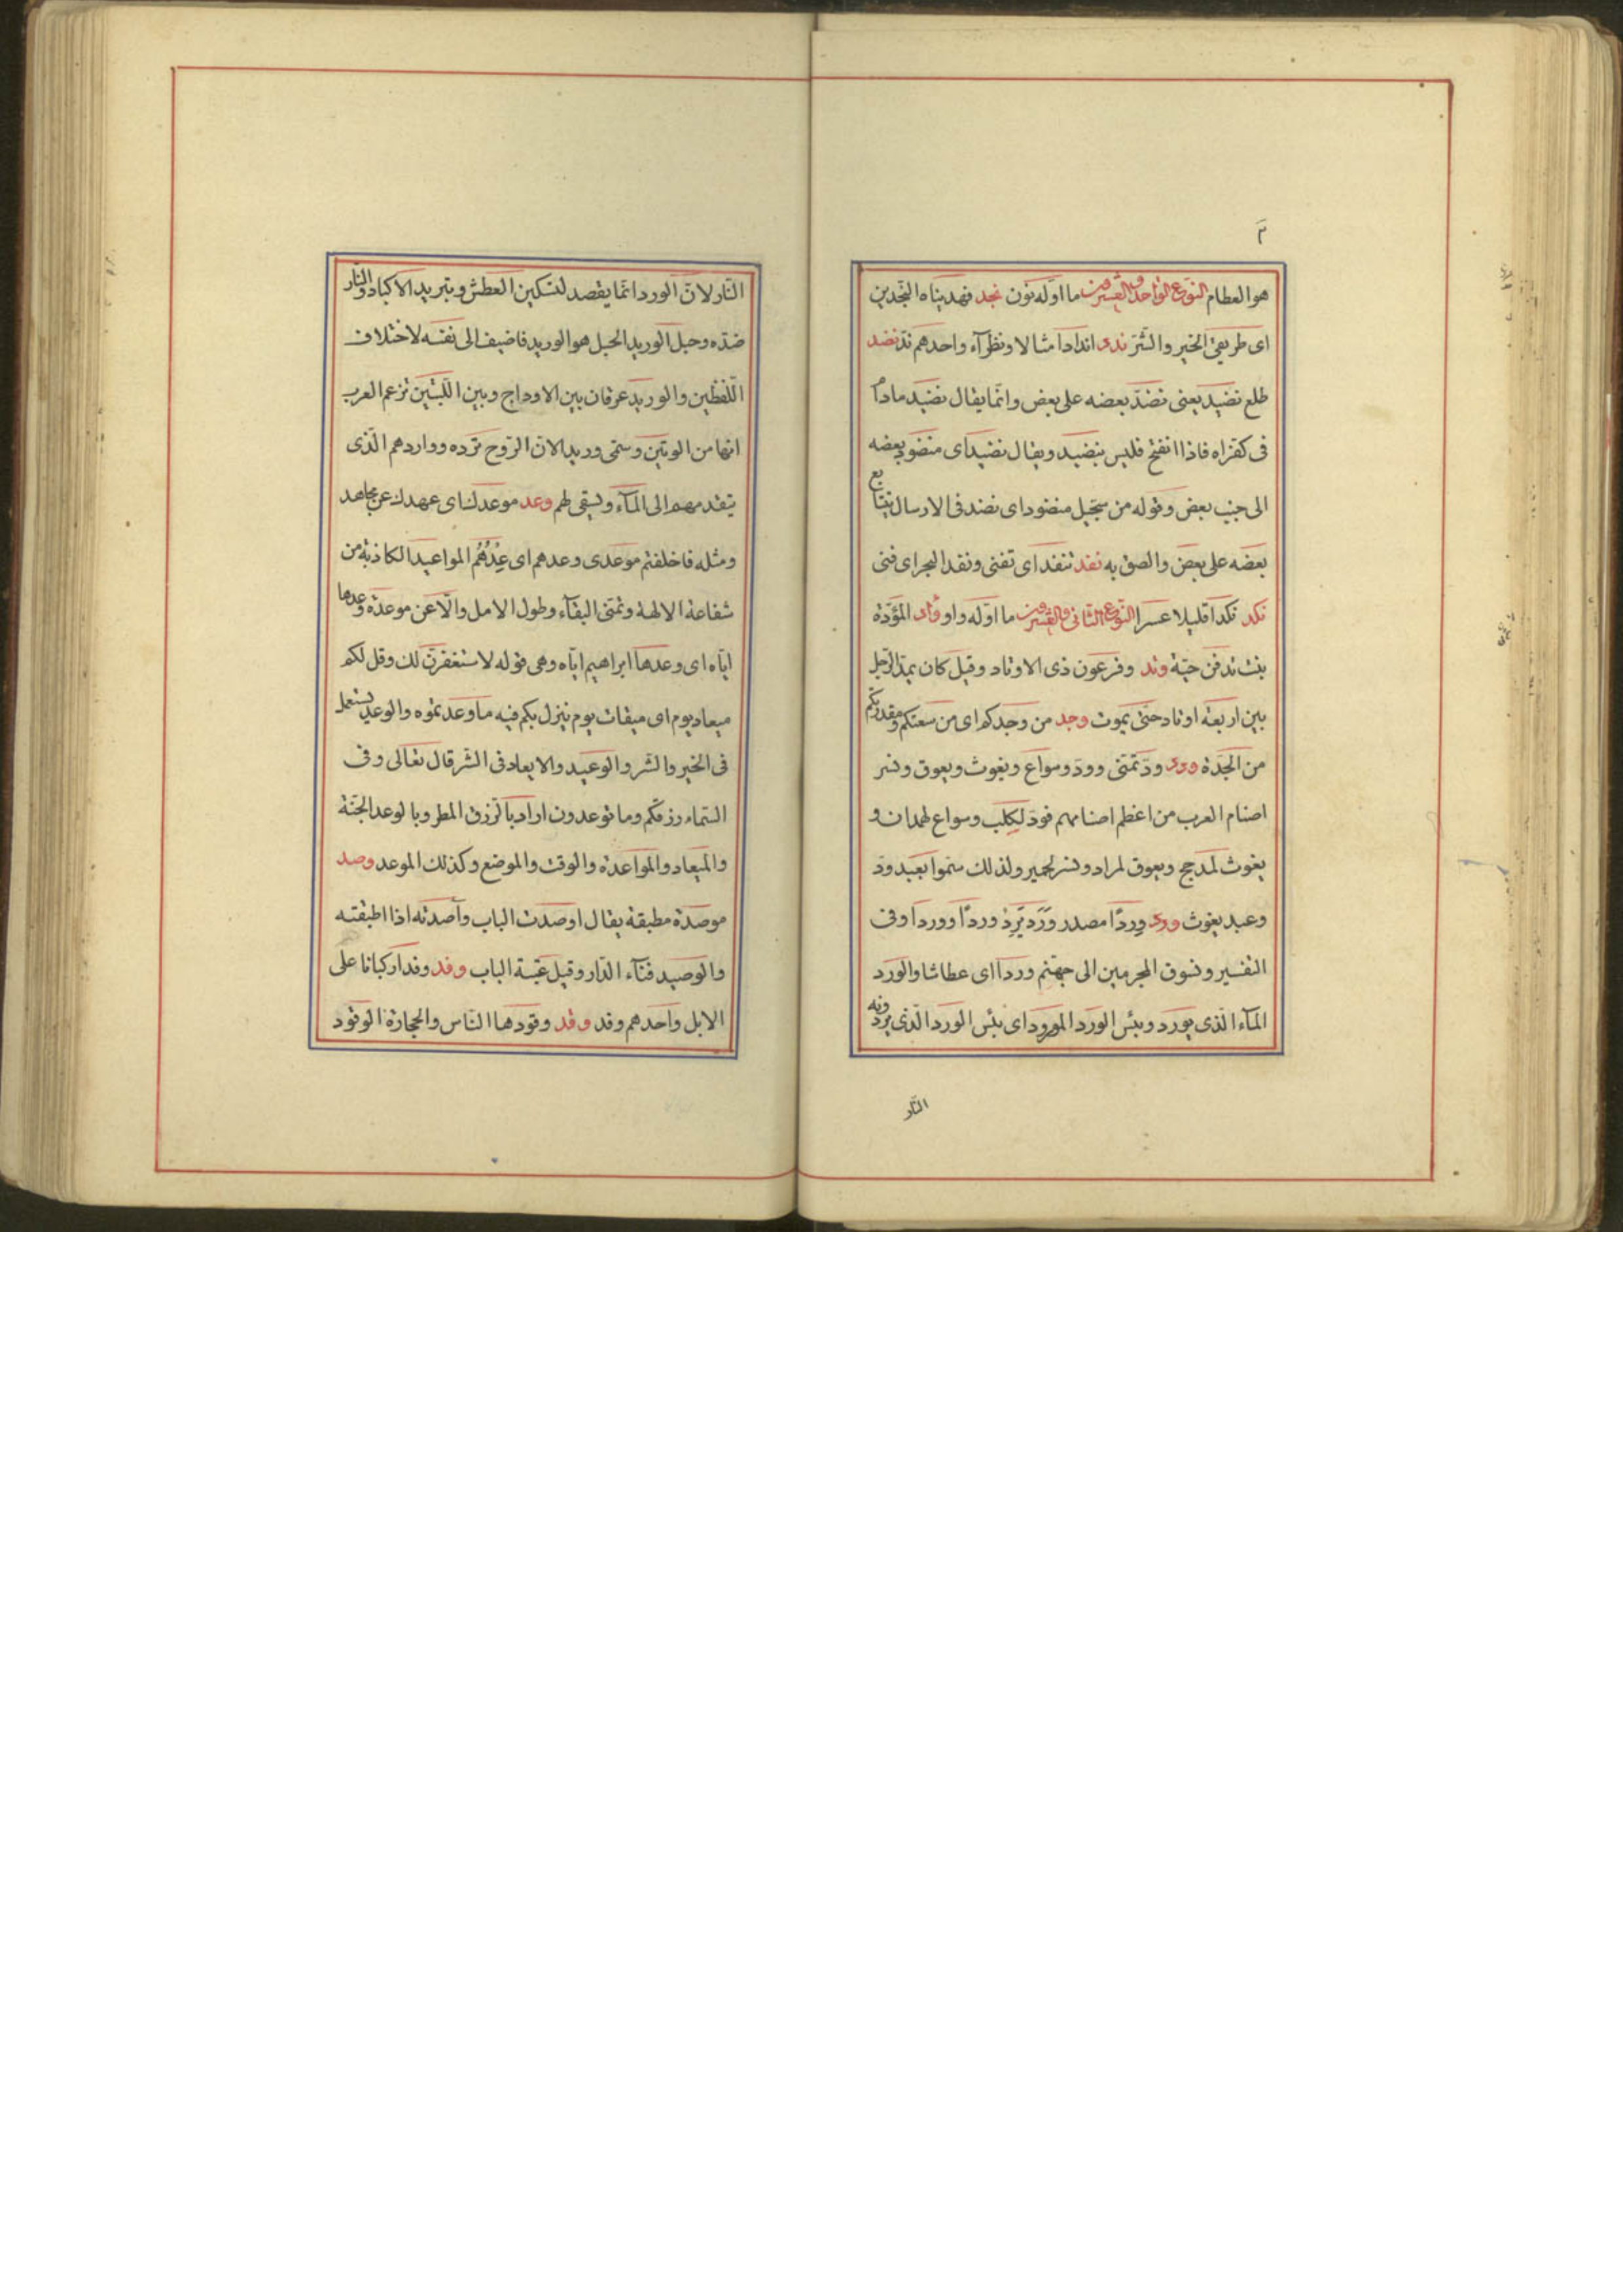 م
هو العظام النوع الواحد والعشرون ما اوله نون نجد فهديناه النجدين
اى طريقى الخير والشر ندد اندادا مثالا ونظرآء واحدهم ند نضد
طلع نضيد يعنى نضد بعضه على بعض وانما يقال نضيد مادام
فى كفراه فاذا انفتح فليس بنضيد ويقال نضيد اى منضود بعضه
الى جنب بعض وقوله من سجيل منضود اى نضد فى الارسال يتتابع
بعضه على بعض والصق به نفد تنفد اى تفنى ونفد البحر اى فنى
نكد نكدا قليلا عسرا النوع الثانى والعشرون ما اوله واو وأد المؤدة
بنت تدفن حية وتد وفرعون ذى الاوتاد وقيل كان يمد الرجل
بين اربعة اوتاد حتى يموت وجد من وجدكم اى من سعتكم ومقدرتكم
من الجدة ودد ود تمنى وود وسواع ويغوث ويعوق ونسر
اصنام العرب من اعظم اصنامهم فود لكلب وسواع لهمدان و
يغوث لمدحج ويعوق لمراد ونسر لحمير ولذلك سموا بعبد ود
وعبد يغوث ورد وردا مصدر ورد يرد وردا ووردا وفى
التفسير ونسوق المجرمين الى جهنم وردا اى عطاشا والورد
المآء الذى يورد وبئس الورد المورود اى بئس الورد الذى يردونه
النار
النار لان الورد انما يقصد لتسكين العطش وتبريد الاكباد والنار
ضده وحبل الوريد الحبل هو الوريد فاضيف الى نفسه لاختلاف
اللفظين والوريد عرقان بين الاوداج وبين اللبتين تزعم العرب
انها من الوتين وسمى وريدا لان الروح ترده وواردهم الذى
يتقدمهم الى المآء ويسقى لهم وعد موعدك اى عهدك عن مجاهد
ومثله فاخلفتم موعدى وعدهم اى عدهم المواعيد الكاذبة من
شفاعة الالهة وتمنى البقآء وطول الامل والا عن موعدة وعدها
اياه اى وعدها ابراهيم اياه وهى قوله لاستغفرن لك وقل لكم
ميعاد يوم اى ميقات يوم ينزل بكم فيه ما وعدتموه والوعد يستعمل
فى الخير والشر والوعيد والايعاد فى الشر قال تعالى وفى
السماء رزقكم وما توعدون اراد بالرزق المطر وبالوعد الجنة
والميعاد والمواعدة والوقت والموضع وكذلك الموعد وصد
موصدة مطبقة يقال اوصدت الباب وآصدته اذا اطبقته
والوصيد فنآء الدار وقيل عتبة الباب وفد وفدا ركبانا على
الابل واحدهم وفد وقد وقودها الناس والحجارة الوقود